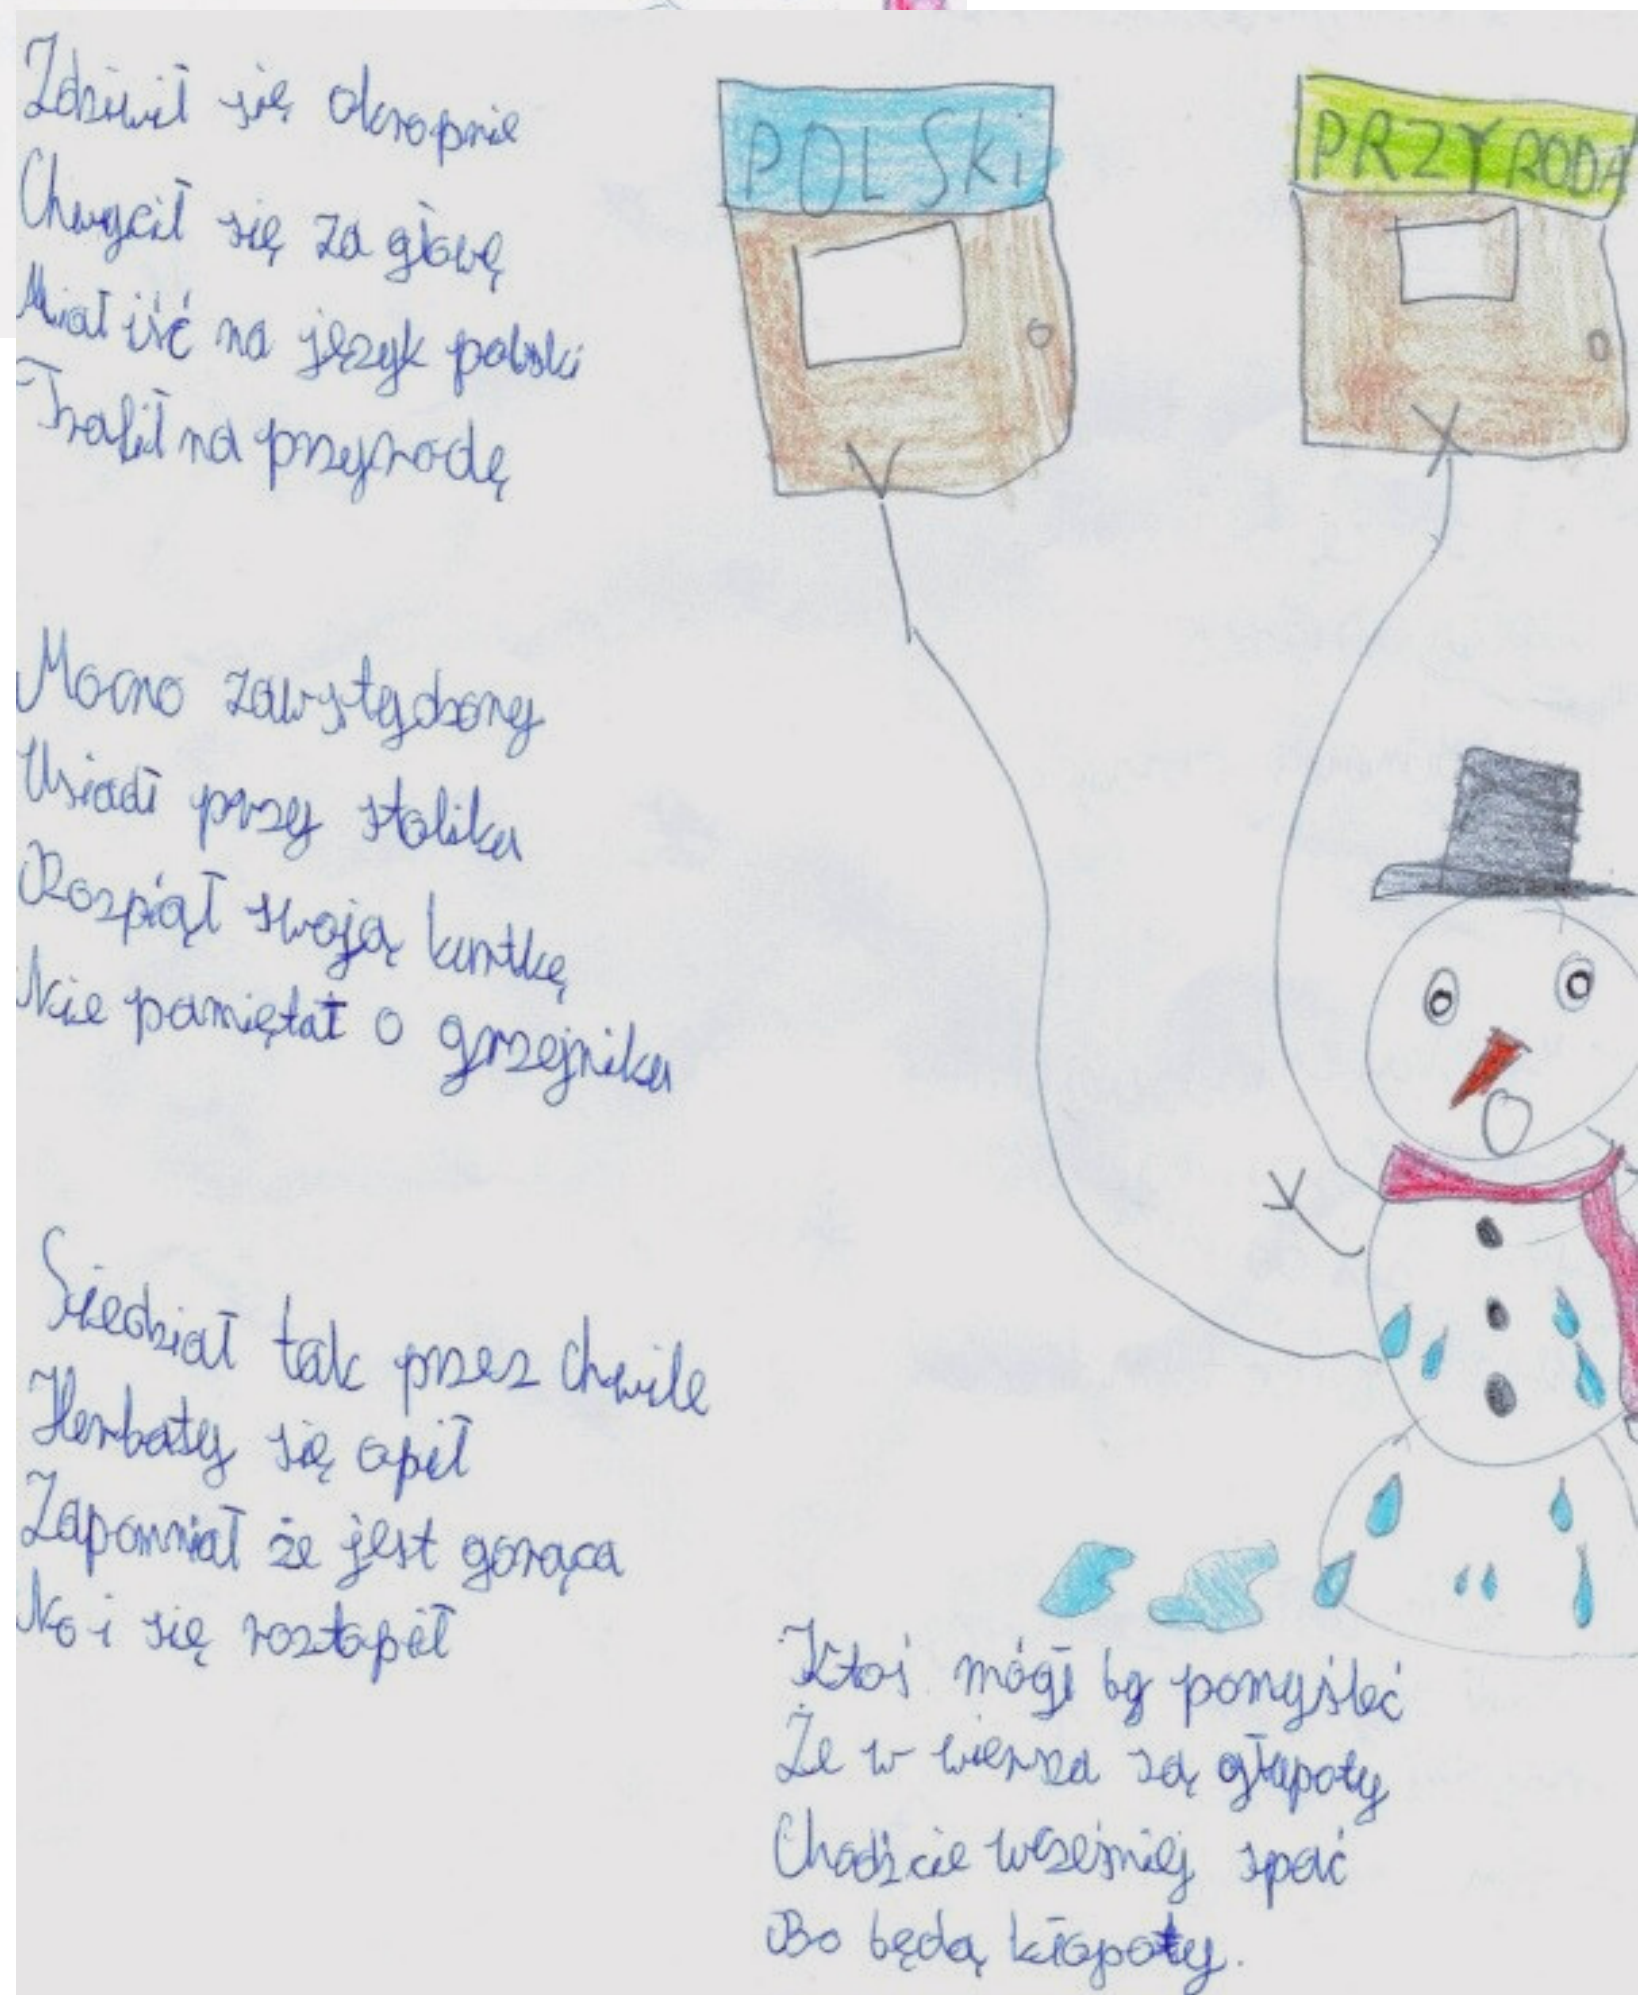 Zdziwił się okropnie
Chwycił się za głowę
Miał iść na język polski
Trafił na przyrodę
POLSki
PRZYRODA
Mocno zawstydzony
Usiadł przy stoliku
Rozpiął swoją kurtkę
Nie pamiętał o grzejniku
Siedział tak przez chwile
Herbaty się opił
Zapomniał że jest gorąca
No i się roztopił
Ktoś mógł by pomyśleć
Że w wierszu są głupoty
Chodźcie wcześniej spać
Bo będą kłopoty.